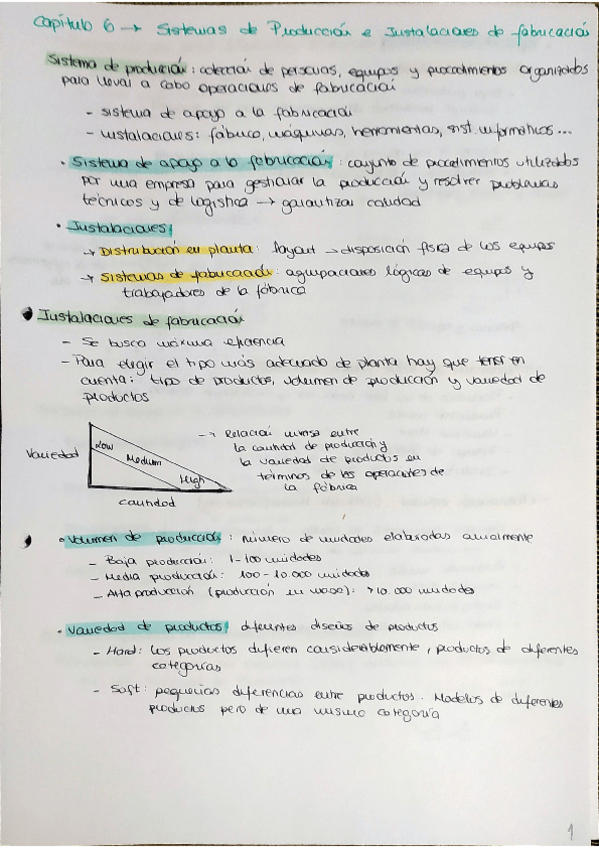 Capítulo 6 → Sistemas de Producción e Instalaciones de fabricación
Sistema de producción: colección de personas, equipos y procedimientos organizados
para llevar a cabo operaciones de fabricación
- sistema de apoyo a la fabricación
- instalaciones: fábrica, máquinas, herramientas, sist. informáticos...
• Sistema de apoyo a la fabricación: conjunto de procedimientos utilizados
por una empresa para gestionar la producción y resolver problemas
técnicos y de logística → garantizar calidad
• Instalaciones:
→ Distribución en planta: layout → disposición física de los equipos
→ Sistemas de fabricación: agrupaciones lógicas de equipos y
trabajadores de la fábrica
Instalaciones de fabricación
- Se busca máxima eficiencia
- Para elegir el tipo más adecuado de planta hay que tener en
cuenta: tipo de productos, volumen de producción y variedad de
productos
Variedad
Low
Medium
High
cantidad
→ Relación inversa entre
la cantidad de producción y
la variedad de productos en
términos de los operantes de
la fábrica
• Volumen de producción: número de unidades elaboradas anualmente
- Baja producción: 1-100 unidades
- Media producción: 100-10.000 unidades
- Alta producción (producción en masa): >10.000 unidades
• Variedad de productos: diferentes diseños de productos
- Hard: los productos difieren considerablemente, productos de diferentes
categorías
- Soft: pequeñas diferencias entre productos. Modelos de diferentes
productos pero de una misma categoría
1